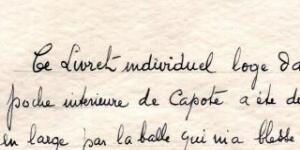 Ce Livret individuel loge da
poche intérieure de Capote a été de
en large par la balle qui m'a blessé